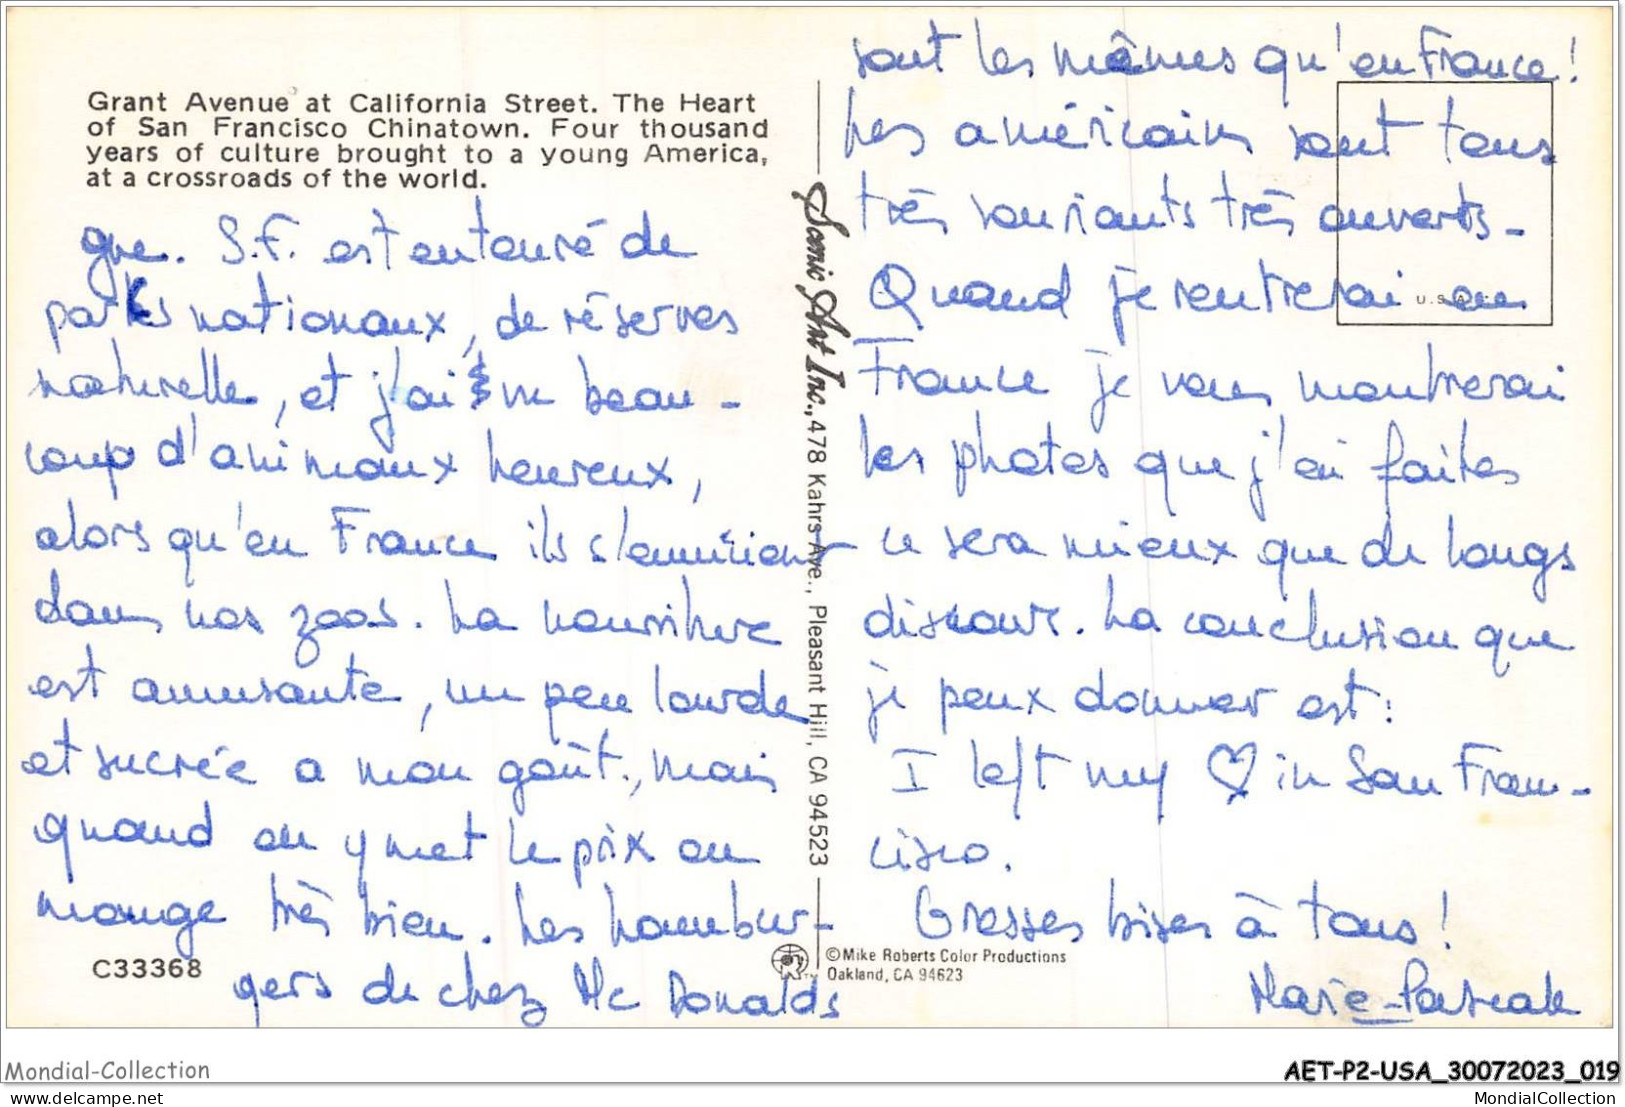 Grant Avenue at California Street. The Heart
of San Francisco Chinatown. Four thousand
years of culture brought to a young America,
at a crossroads of the world.
que. S.F. est entouré de
parcs nationaux, de réserves
naturelle, et j'ai vu beau-
coup d'animaux heureux,
alors qu'en France ils s'ennuient
dans nos zoos. La nourriture
est amusante, un peu lourde
et sucrée a mon goût, mais
quand on y met le prix on
mange très bien. Les hambur-
gers de chez Mc Donalds
C33368
Scenic Art Inc., 478 Kahrs Ave., Pleasant Hill, CA 94523
sont les mêmes qu'en France!
Les américains sont tous
très souriants très ouverts-
Quand je rentrerai en
France je vous montrerai
les photos que j'ai faites
ce sera mieux que de longs
discours. La conclusion que
je peux donner est:
I left my ♡ in San Fran-
cisco.
Grosses bises à tous!
Marie-Pascale
U.S.A.
©Mike Roberts Color Productions
Oakland, CA 94623
Mondial-Collection
AET-P2-USA_30072023_019
www.delcampe.net
MondialCollection